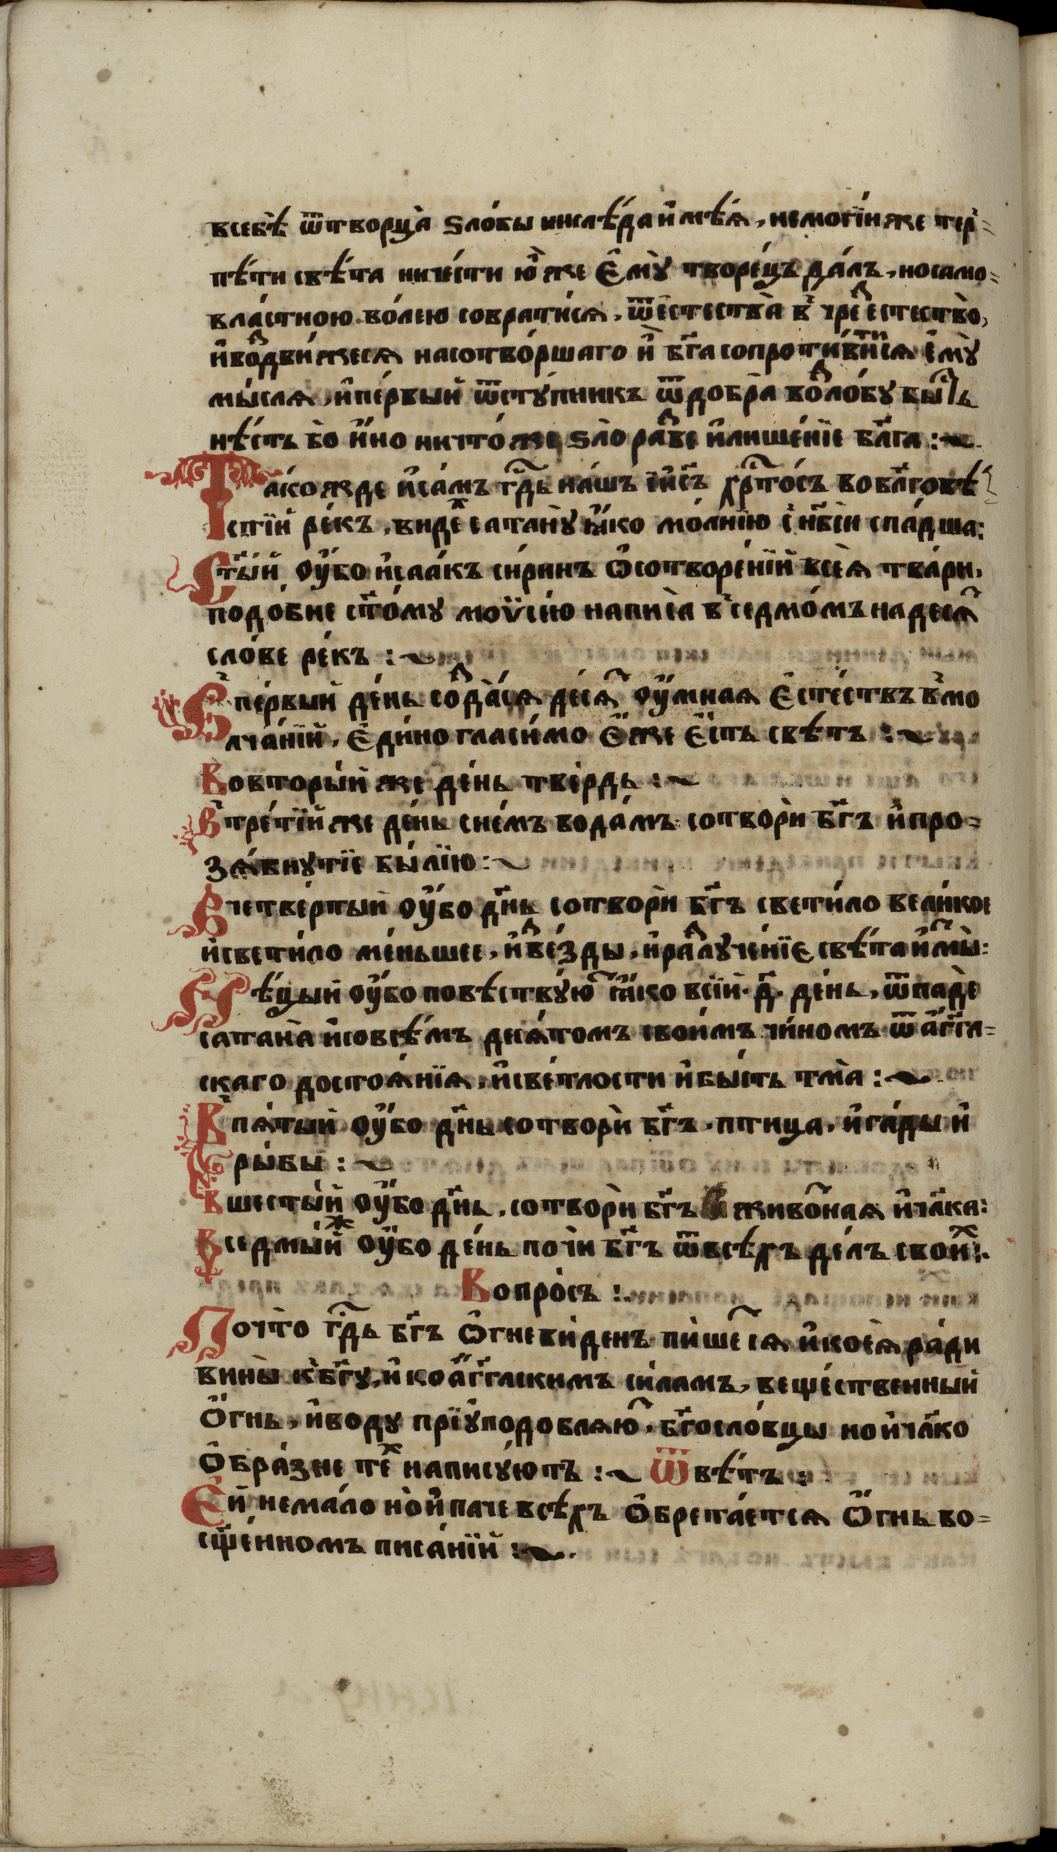 всебѣ̀ ѿтворца̀ ѕло́бы инслѣ́да и҆мѣѧ́, немоги́й же тер-
пѣ́ти свѣ́та ниче́сти ю҆́же є҆мꙋ̀ творе́цъ да́лъ, носамо-
вла́стною во́лею соврати́сѧ, ѿесте́ства в чреⷥ есте́ство̀,
и҆воⷣви́жесѧ насотво́ршаго и҆̀ бг҃а сопроти́витисѧ є҆мꙋ̀
мы́слѧ, и҆пе́рвый ѿстꙋ́пникъ ѿдобра̀ воⷥло́бꙋ бы́сть
нѣ́сть бо и҆́но ничто́же ѕло̀ раⷥве и҆лише́нїе бл҃га :~
Та́кожде и҆са́мъ гдⷭ҇ь на́шъ і҆и҃съ хрⷭ҇то́съ вобл҃говѣ́
стїй ре́къ, ви́деⷯ сатанꙋ̀ ꙗ҆́ко мо́лнїю с нб҃си́ спа́дша:
Ст҃ы́й ᲂу҆́бо и҆саа́къ си́ринъ ѡ҆сотворе́нїй всеѧ̀ тва́ри,
подо́бне ст҃о́мꙋ моѷсе́ю написа̀ в седмо́мъ надесѧⷮ
сло́ве ре́къ :~
В пе́рвый де́нь соⷥда́сѧ десѧⷮ ᲂу҆́мная є҆сте́ствъ в мо
лча́нїй, є҆ди́но гласи́мо є҆́же є҆́сть свѣ́тъ :~
Вовторы́й же де́нь тве́рдь :~
В тре́тїй же де́нь сне́мъ вода́мъ сотворѝ бг҃ъ и҆про-
зѧ́бнꙋтїе бы́лїю :~
В четве́ртый ᲂу҆́бо дн҃ь сотворѝ бг҃ъ свети́ло вели́кое
и҆свети́ло ме́ньшее, и҆ⷥвѣ́зды, и҆раⷥлꙋче́нїе свѣ́та и҆тⷨы̀:
Нѣ́цый ᲂу҆́бо повѣ́ствꙋюⷮ ꙗ҆́ко всїй · д҃ · де́нь, ѿпадѐ
сатана̀ и҆совсѣ́мъ десѧ́томъ свои́мъ чи́номъ ѿа҆́гг҃л-
скаго достоѧ́нїя, и҆све́тлости и҆бы́сть тма̀ :~
В пѧ́тый ᲂу҆́бо дн҃ь сотворѝ бг҃ъ · пти́ца, и҆га́ды и҆
ры́бы :~
В шесты́й ᲂу҆́бо дн҃ь, сотворѝ бг҃ъ живо́ⷮная и҆чл҃ка:
В седмы́йⷤ ᲂу҆́бо де́нь почѝ бг҃ъ ѿвсѣ́хъ де́лъ свои́ⷯ :.
Вопро́съ :.
Почто̀ гдⷭ҇ь бг҃ъ ѻ҆гневи́денъ пи́шеⷮсѧ и҆коеѧ̀ ра́ди
вины̀ к бг҃ꙋ, и҆коа҆́гг҃лскимъ си́ламъ, веще́ственный
ѻ҆́гнь, и҆во́дꙋ прїᲂу҆подоблѧ́юⷮ, бг҃осло́вцы но и҆чл҃ко
ѻ҆бра́зне теⷯ написꙋ́ютъ :~ Ѿвѣ́тъ :
Ей нема́ло но̀ и҆па́че всѣ́хъ ѻ҆брета́етсѧ ѻ҆́гнь во-
сщ҃е́нномъ писа́нїй :~.